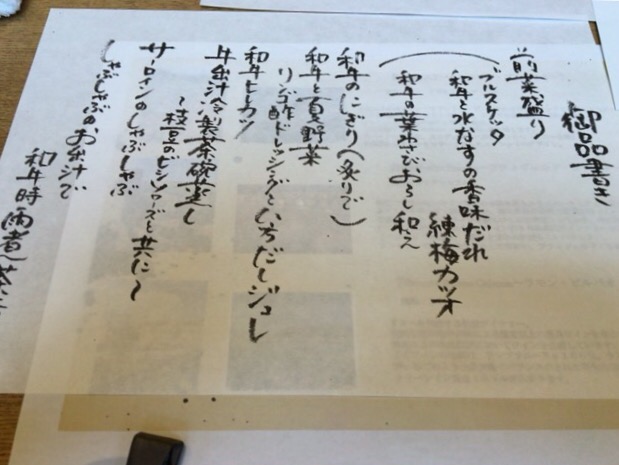 御品書き
前菜盛り
ブルスケッタ
和牛と水なすの香味だれ
練梅カツオ
和牛の葉わさびおろし和え
和牛のにぎり(炙りで)
和牛と夏野菜
リンゴ酢ドレッシングと八方だしジュレ
和牛ヒレカツ
牛出汁冷製茶碗蒸し
〜枝豆のビシソワーズと共に〜
サーロインのしゃぶしゃぶ
しゃぶしゃぶのお出汁で
和牛時雨煮茶